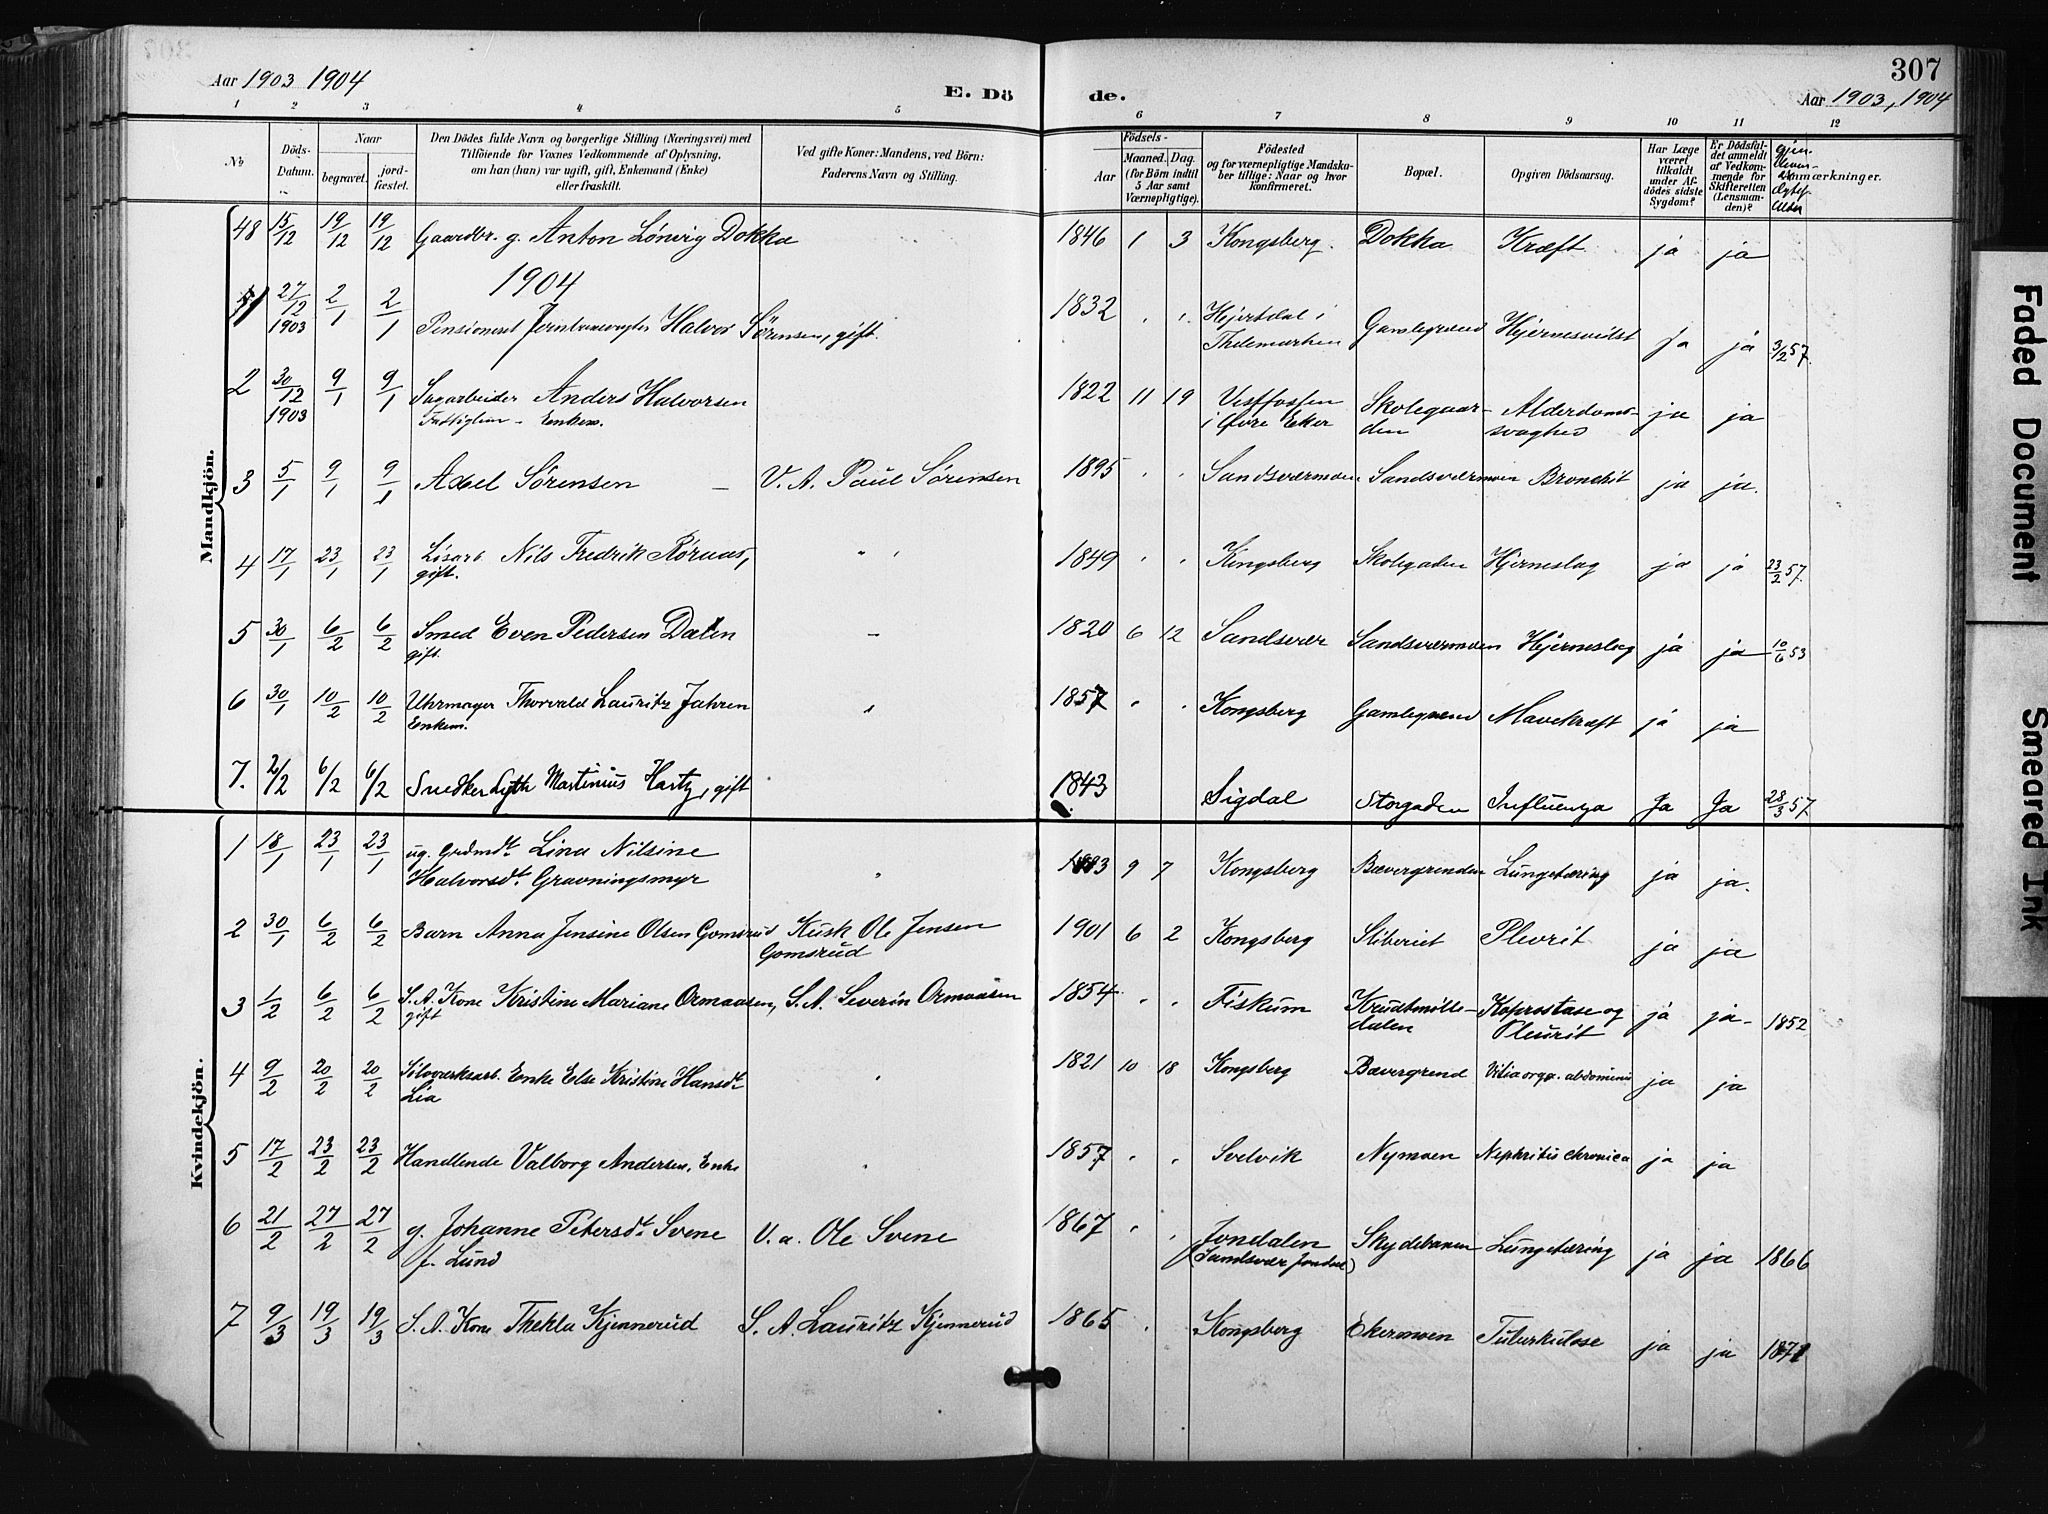 307
Aar 1903 1904 E. Dö de. Aar 1903, 1904
1 2 3 4 5 6 7 8 9 10 11 12
No
Döds-Datum.
Naar
begravet.
jord-fæstet.
Den Dödes fulde Navn og borgerlige Stilling (Næringsvei) med
Tilföiende for Voxnes Vedkommende af Oplysning,
om han (hun) var ugift, gift, Enkemand (Enke)
eller fraskilt.
Ved gifte Koner: Mandens, ved Börn:
Faderens Navn og Stilling.
Födsels-
Aar
Maaned. Dag.
(for Börn indtil
5 Aar samt
Værnepligtige).
Födested
og for værnepligtige Mandska-
ber tillige: Naar og hvor
konfirmeret.
Bopæl.
Opgiven Dödsaarsag.
Har Læge
været
tilkaldt
under Af-
dödes sidste
Sygdom?
Er Dödsfal-
det anmeldt
af Vedkom-
mende for
Skifteretten
(Lensman-
den)?
Anmærkninger.
Mandkjön.
48 15/12 19/12 19/12 Gaardbr. g. Anton Lönvig Dokka 1846 1 3 Kongsberg. Dokka Kræft ja ja
1904
1 27/12 1903 2/1 2/1 Pensioneret Jernbanevogter Halvor Sörensen, gift. 1832 " " Hjertdal i Thelemarken Gamlegrend Hjernesvidst Ja ja 3/2 57.
2 30/12 1903 9/1 9/1 Sagarbeider Anders Halvorsen 1822 11 19 Vestfossen i Øvre Eker Skolegaar-den Alderdoms-svaghed ja ja
Fattiglem - Enkem.
3 5/1 9/1 9/1 Axel Sörensen — V. A. Paul Sörensen 1895 " " Sandsværmoen Sandsværmoen Bronchit ja ja.
4 17/1 23/1 23/1 Løsarb. Nils Fredrik Röraas, " 1849 " " Kongsberg Skolegaden Hjerneslag ja ja 23/2 57.
gift.
5 30/1 6/2 6/2 Smed Even Pedersen Dalen — 1820 6 12 Sandsvær Sandsværmoen Hjerneslag ja ja 10/6 53
gift.
6 30/1 10/2 10/2 Uhrmager Thorvald Lauritz Jahren " 1857 " " Kongsberg Gamlegrend Mavekræft ja ja
Enkem.
7. 2/2 6/2 6/2 Snedker Lyth Martinius Hartz, gift 1843 Sigdal Storgaden Influenza Ja Ja 28/3 57
Kvindekjön.
1 18/1 23/1 23/1 ug. Grdmdt. Lina Nilsine 1883 9 7 Kongsberg Bævergrenden Lungetæring ja ja.
Halvorsdt. Gravningsmyr "
2 30/1 6/2 6/2 Barn Anna Jensine Olsen Gomsrud Kusk Ole Jensen Gomsrud 1901 6 2 Kongsberg Stiberiet Plevrit ja ja
3 1/2 6/2 6/2 S. A. Kone Kristine Mariane Ormaasen, S. A. Severin Ormaasen 1854 " " Fiskum Krudtmölle-dalen Koprostase og Pleurit ja ja- 1852
gift
4 9/2 20/2 20/2 Sölvværksarb. Enke Else Kristine Hansdt. " 1821 10 18 Kongsberg Bævergrend Vitia orga. abdominis ja ja
Lia
5 17/2 23/2 23/2 Handlende Valborg Andersen, Enke " 1857 " " Svelvik Nymoen Nephritis chronica ja ja
6 21/2 27/2 27/2 g. Johanne Petersdt. Svene V. a. Ole Svene 1867 " " Jondalen Skydebanen Lungetæring ja ja 1866
f. Lund (Sandsvær Jondal)
7 9/3 19/3 19/3 S. A. Kone Thekla Kjennerud S. A. Lauritz Kjennerud 1865 " Kongsberg Ekermoen Tuberkulose ja ja 1871
Faded Document
Smeared Ink